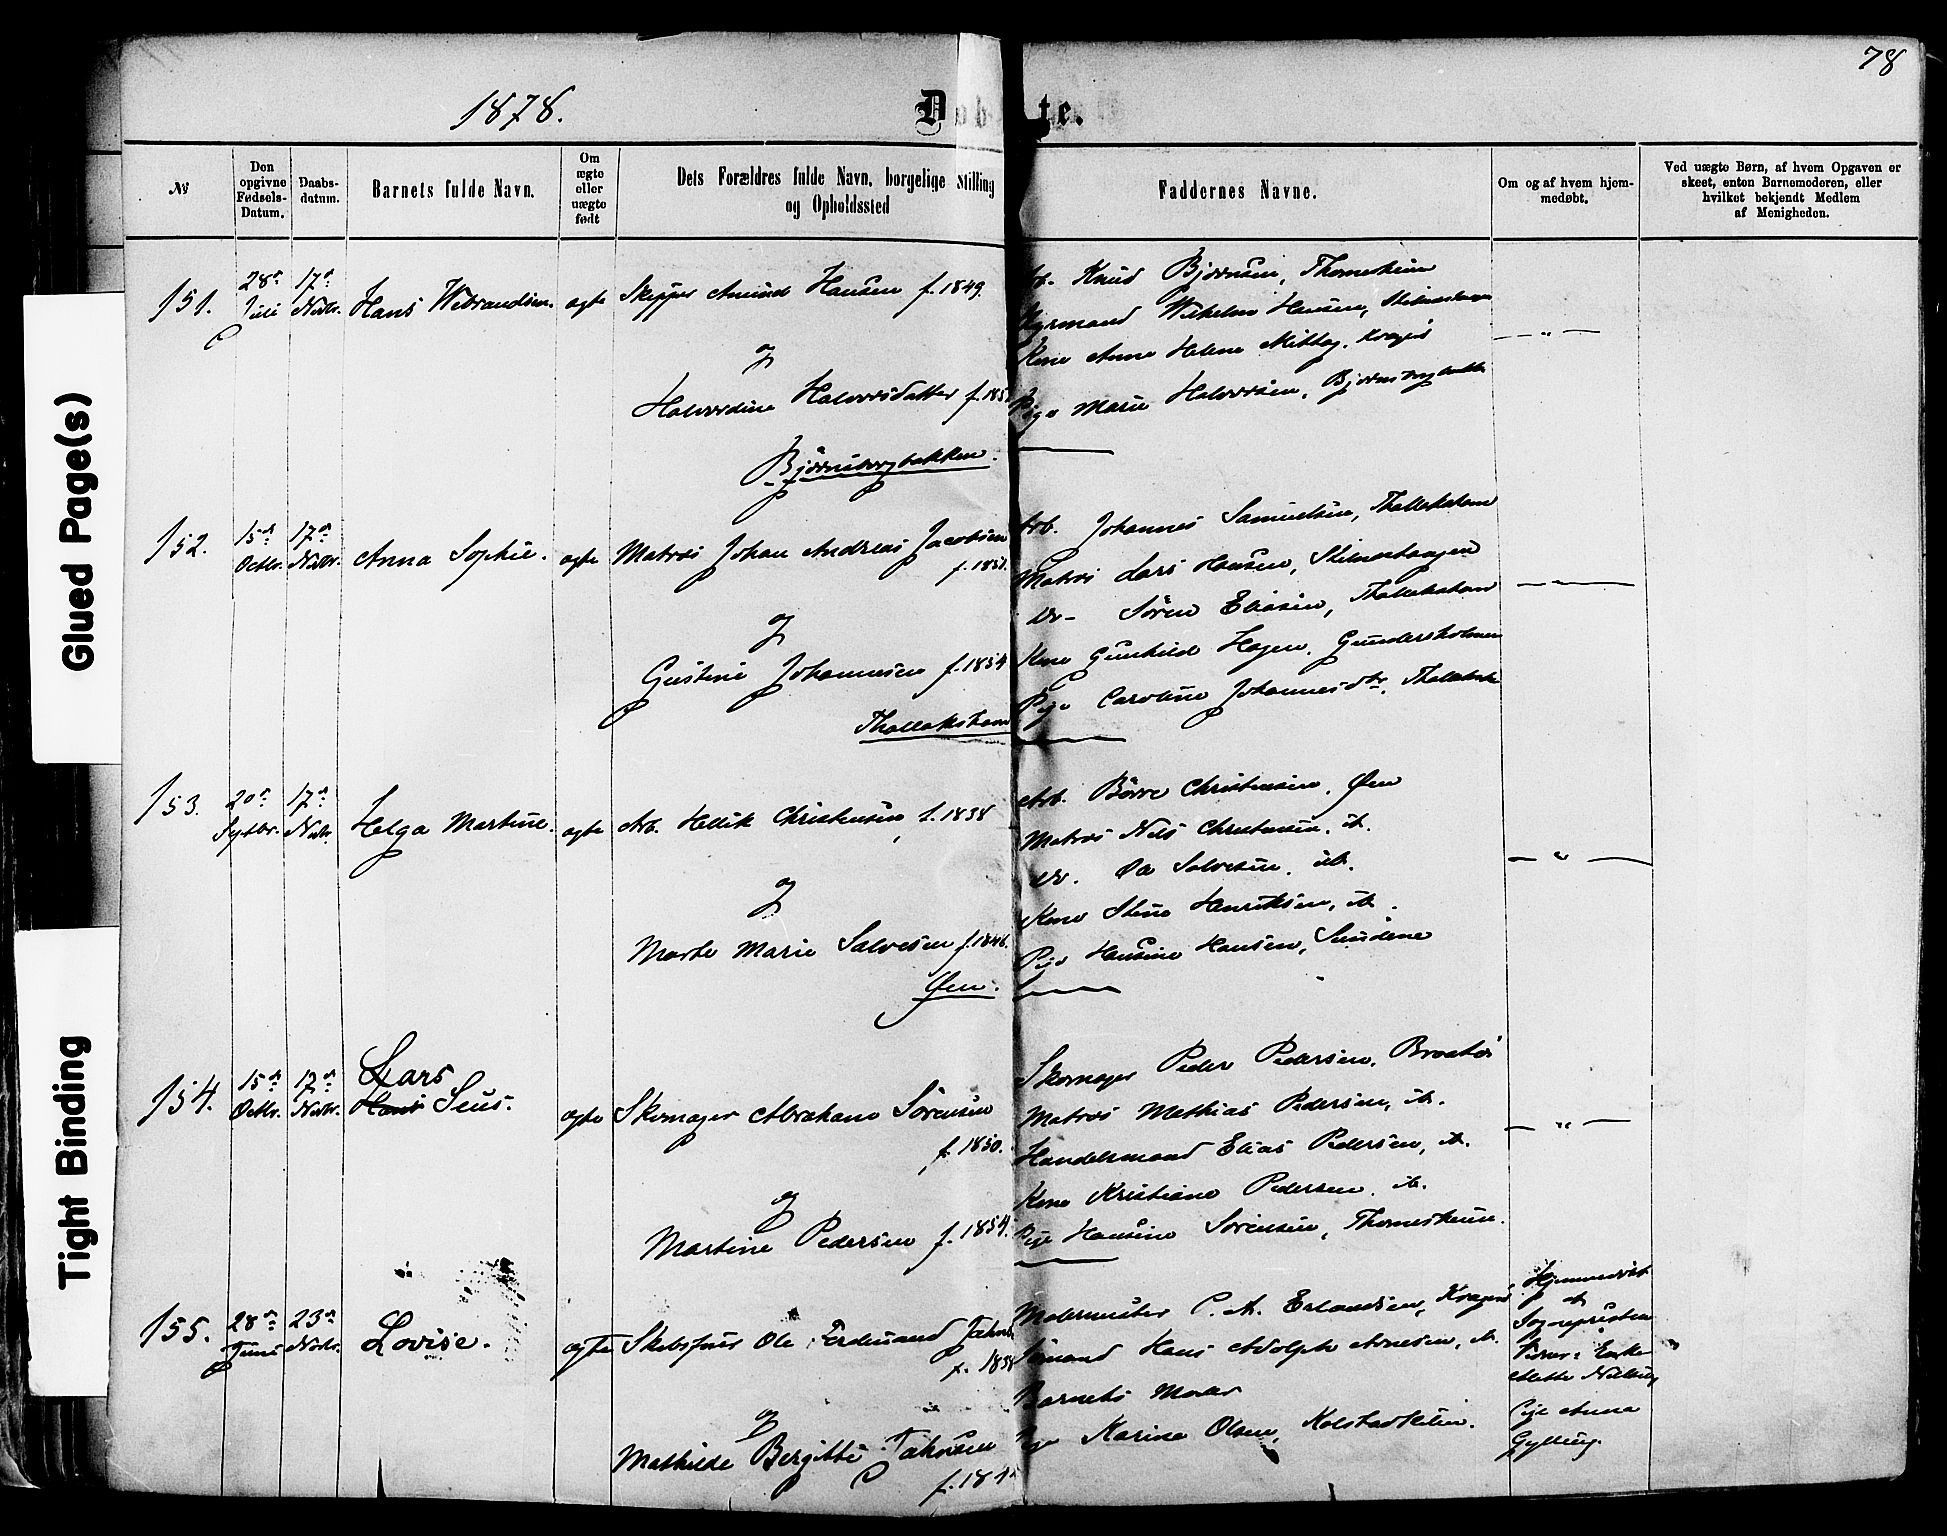 78
1878.
Døbte.
№
Den opgivne Fødsels-Datum.
Daabs-datum.
Barnets fulde Navn.
Om ægte eller uægte født
Dets Forældres fulde Navn, borgelige Stilling og Opholdssted
Faddernes Navne.
Om og af hvem hjem-medøbt.
Ved uægte Børn, af hvem Opgaven er skeet, enten Barnemoderen, eller hvilket bekjendt Medlem af Menigheden.
151.
28d Juli
17d Novbr.
Hans Vebrandsen.
ægte
Skipper Amund Hansen f. 1849.
og
Halvordine Halvorsdatter f. 185
Bjørnsborgbakken.
Arb. Knud Bjørnsen, Thomesheien
Styrmand Vilhelm Hansen, Stilnestangen
Kone Anne Helene Mittag, Kragerø
Pige Marie Halvorsen, Bjørnsborgbakken
— " —
152.
15d Octbr.
17d Novbr.
Anna Sophie.
ægte
Matros Johan Andreas Jacobsen
og
Gustine Johannesen f. 1854
Thallakshavn
Arb. Johannes Samuelsen, Thallakshavn
Matros Lars Hansen, Stilnestangen
Do- Søren Eliasen, Thallakshavn
Kone Gunhild Hagen, Gundersholmen
Pige Caroline Johannesdtr,
153.
20d Septbr.
17d Novbr.
Helga Martine.
ægte
Arb. Hellik Christensen, f. 1838
og
Marte Marie Salvesen f. 1846.
Øen.
Arb. Børre Christensen, Øen
Matros Nils Christensen, ib.
Do. Ole Salvesen, ib.
Kone Stine Henriksen, ib.
Pige Hansine Hansen, Sundene
— " —
154.
15d Octbr.
17d Novbr.
Lars
Hans Seus.
ægte
Skomager Abraham Sørensen
f. 1850.
og
Martine Pedersen f. 1854.
Skomager Peder Pedersen,
Matros Mathias Pedersen, ib.
Handelsmand Elias Pedersen, ib.
Kone Kristiane Pedersen, ib.
Pige Hansine Sørensen, Thomesheien.
— " —
155.
28d Juni
23d Novbr.
Lovise.
ægte
Skibsfører Ole Ferdinand
f. 1838
og
Mathilde Bergitte
Malermester C. A. Erlandsen, Kragerø
Sømand Hans Adolph Arnesen, ib.
Barnets Moder
Pige Karine Olsen,
Hjemmedøbt
af
Sognepresten
Enke
Mette
Pige Anna
Gylling.
Glued Page(s)
Tight Binding